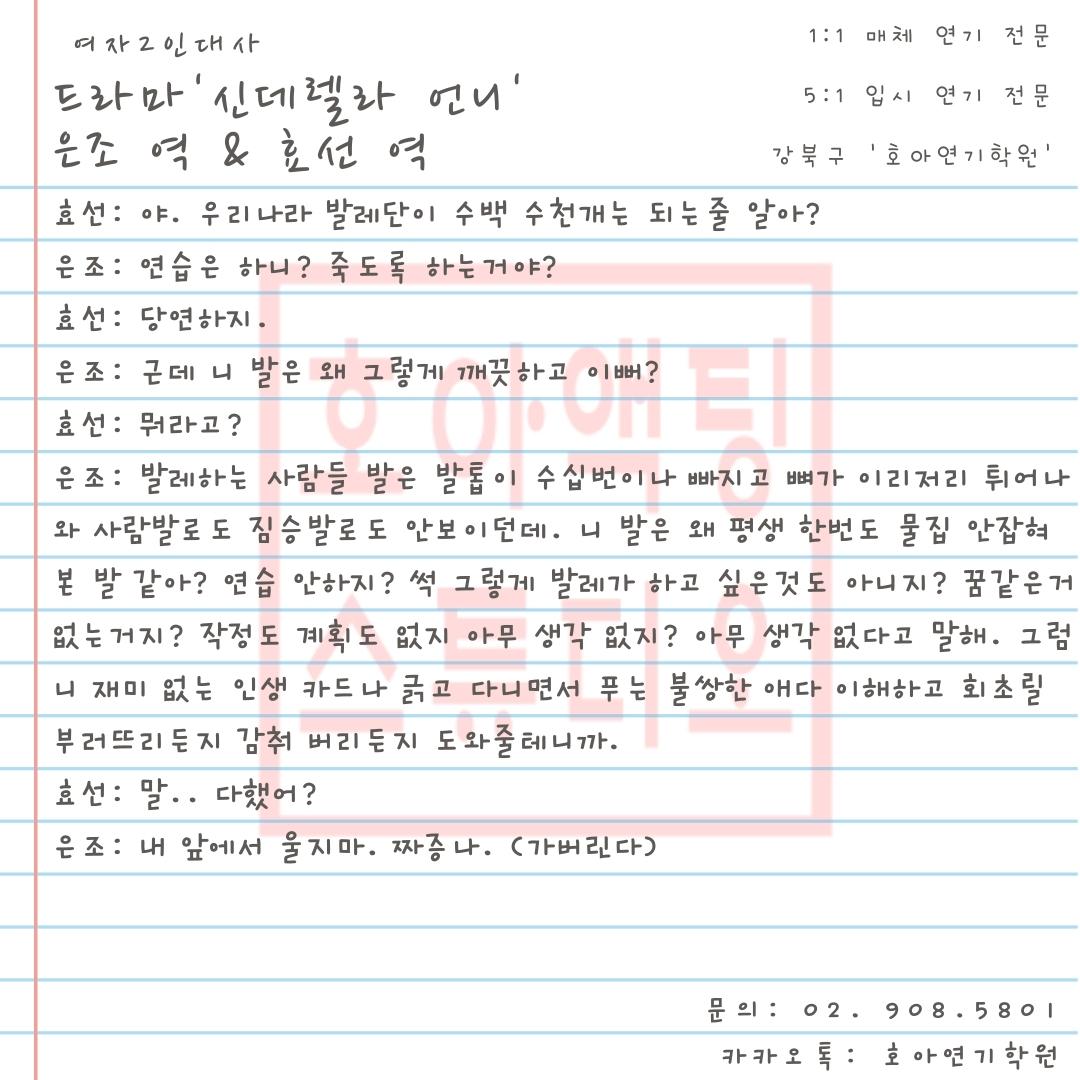 여자2인대사
드라마 '신데렐라 언니'
은조 역 & 효선 역
1:1 매체 연기 전문
5:1 입시 연기 전문
강북구 '호아연기학원'
효선: 야. 우리나라 발레단이 수백 수천개는 되는줄 알아?
은조: 연습은 하니? 죽도록 하는거야?
효선: 당연하지.
은조: 근데 니 발은 왜 그렇게 깨끗하고 이뻐?
효선: 뭐라고?
은조: 발레하는 사람들 발은 발톱이 수십번이나 빠지고 뼈가 이리저리 튀어나
와 사람발로도 짐승발로도 안보이던데. 니 발은 왜 평생 한번도 물집 안잡혀
본 발 같아? 연습 안하지? 썩 그렇게 발레가 하고 싶은것도 아니지? 꿈같은거
없는거지? 작정도 계획도 없지 아무 생각 없지? 아무 생각 없다고 말해. 그럼
니 재미 없는 인생 카드나 긁고 다니면서 푸는 불쌍한 애다 이해하고 회초릴
부러뜨리든지 감춰 버리든지 도와줄테니까.
효선: 말.. 다했어?
은조: 내 앞에서 울지마. 짜증나. (가버린다)
호아액팅
스튜디오
문의: 02. 908.5801
카카오톡: 호아연기학원